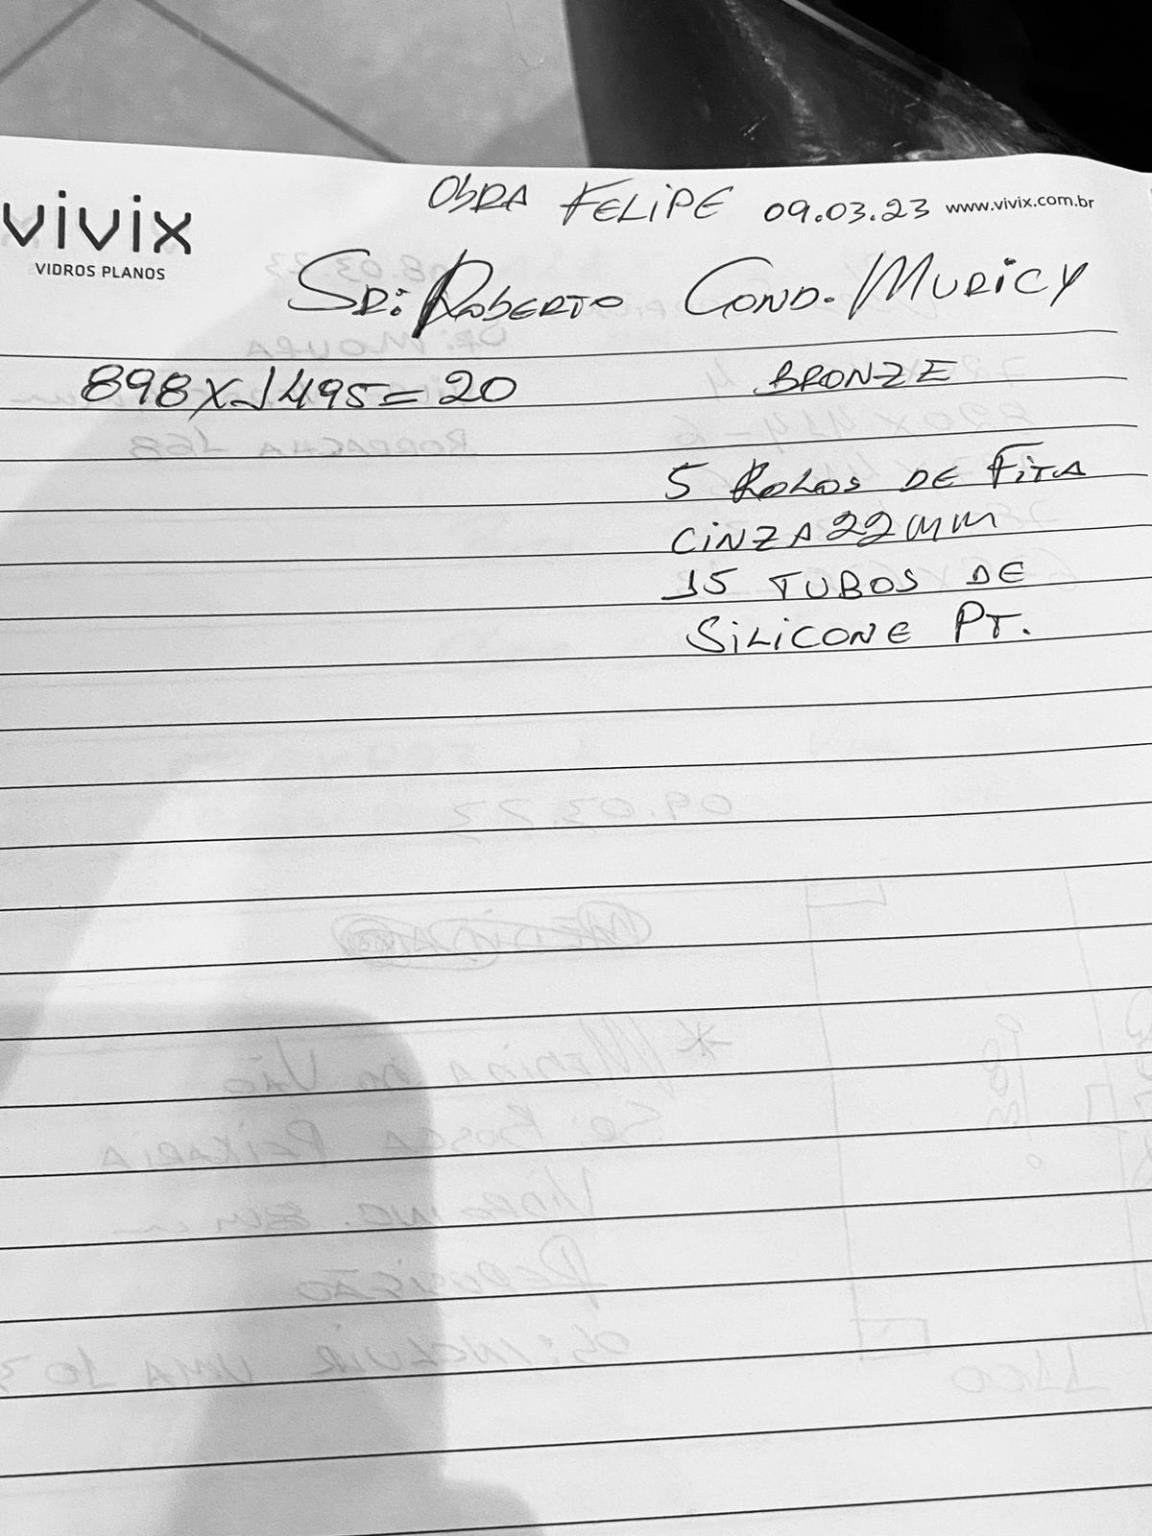 vivix
VIDROS PLANOS
OBRA FELIPE 09.03.23 www.vivix.com.br
SR: ROBERTO COND. MURICY
898 X 1495 = 20 BRONZE
5 ROLOS DE FITA
CINZA 22 MM
15 TUBOS DE
SILICONE PT.